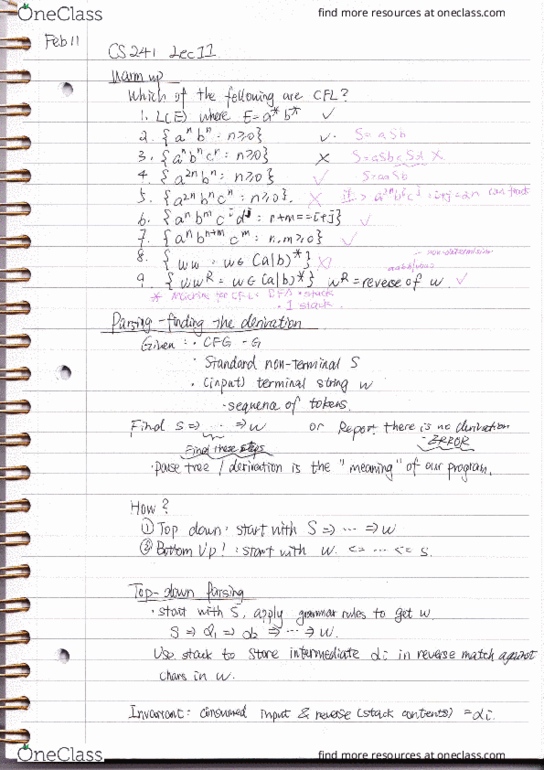 OneClass
find more resources at oneclass.com
Feb 11
CS 241 Lec 11
Warm up
Which of the following are CFL?
1. L(E) where E = a* b* ✓
2. { aⁿ bⁿ : n ≥ 0 } ✓ S = aSb
3. { aⁿ bⁿ cⁿ : n ≥ 0 } ✗ S = aSb
4. { a²ⁿ bⁿ : n ≥ 0 } ✓ S = aaSb
5. { a²ⁿ bⁿ cⁿ : n ≥ 0 }. ✗
6. { aⁿ bᵐ cⁱ dʲ : n+m == i+j } ✓
7. { aⁿ bⁿ⁺ᵐ cᵐ : n, m ≥ 0 } ✓
8. { ww = w ∈ (a|b)* } ✗
9. { wwᴿ = w ∈ (a|b)* } wᴿ = reverse of w ✓
* Machine for CFL = DFA + stack
· 1 stack
Parsing - finding the derivation
Given : · CFG - G
· Standard non-terminal S
· (input) terminal string w
- sequence of tokens.
Find S ⇒ ··· ⇒ w or Report there is no derivation
Find these steps - ERROR
· parse tree / derivation is the "meaning" of our program.
How ?
① Top down : start with S ⇒ ··· ⇒ w
② Bottom Up ! : start with w. <= ··· <= S.
Top-down Parsing
· start with S, apply grammar rules to get w
S ⇒ α₁ ⇒ α₂ ⇒ ··· ⇒ w.
Use stack to store intermediate αi in reverse match against
chars in w.
Invariant: consumed input & reverse (stack contents) = αi.
OneClass
find more resources at oneclass.com